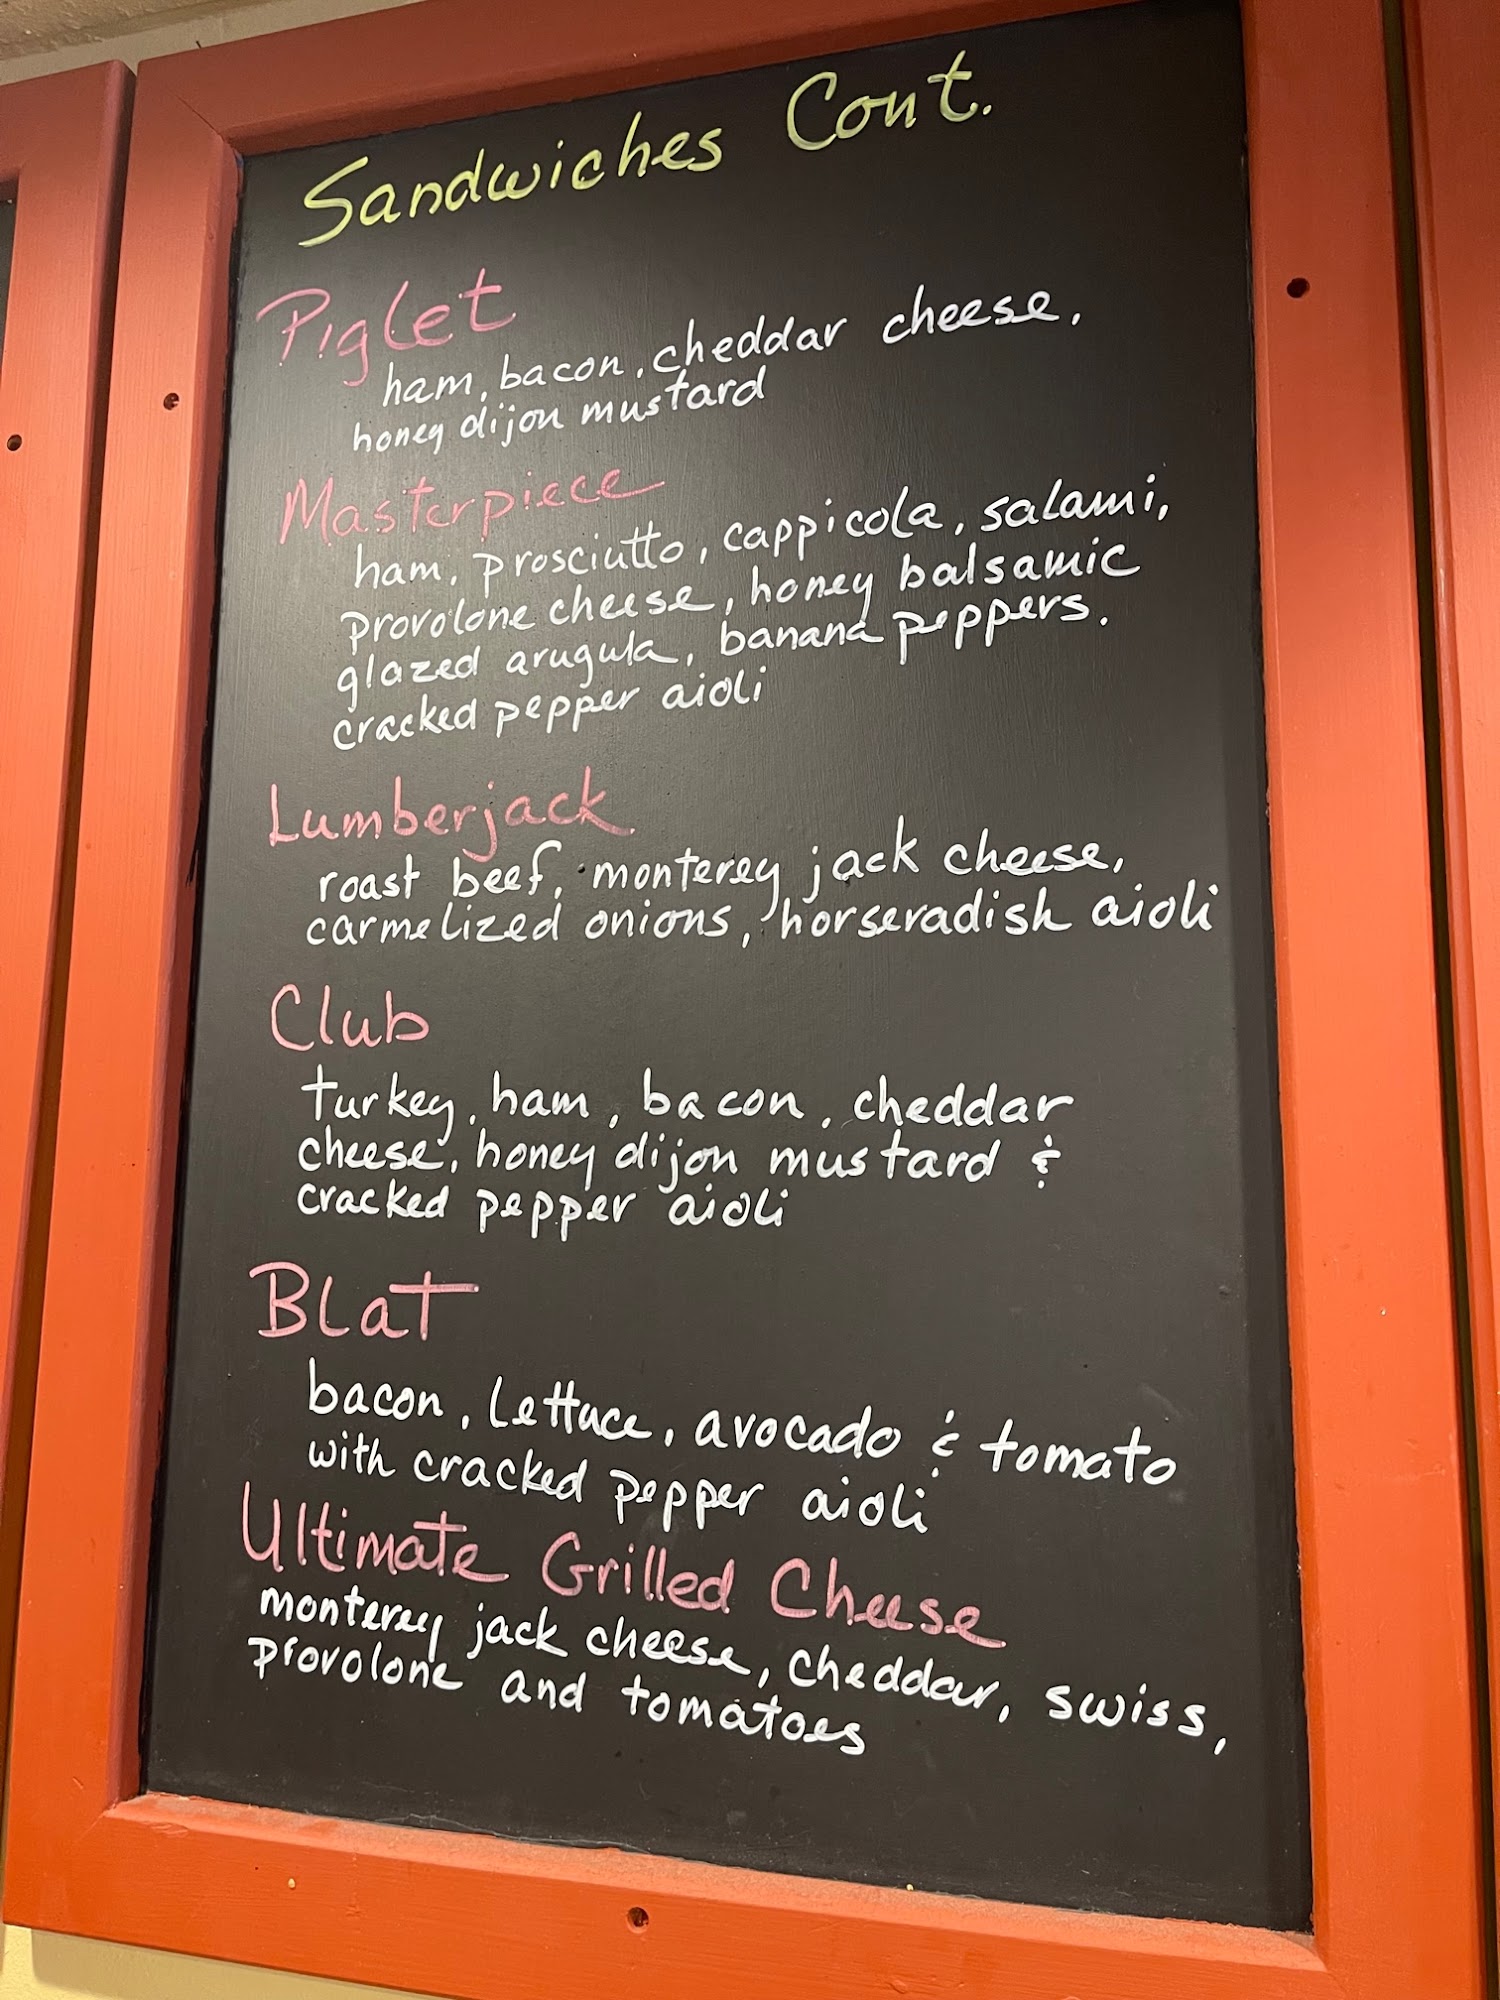 Sandwiches Cont.
Piglet
ham, bacon, cheddar cheese,
honey dijon mustard
Masterpiece
ham, prosciutto, cappicola, salami,
provolone cheese, honey balsamic
glazed arugula, banana peppers.
cracked pepper aioli
Lumberjack
roast beef, monterey jack cheese,
carmelized onions, horseradish aioli
Club
turkey, ham, bacon, cheddar
cheese, honey dijon mustard &
cracked pepper aioli
BLaT
bacon, lettuce, avocado & tomato
with cracked pepper aioli
Ultimate Grilled Cheese
monterey jack cheese, cheddar, swiss,
provolone and tomatoes